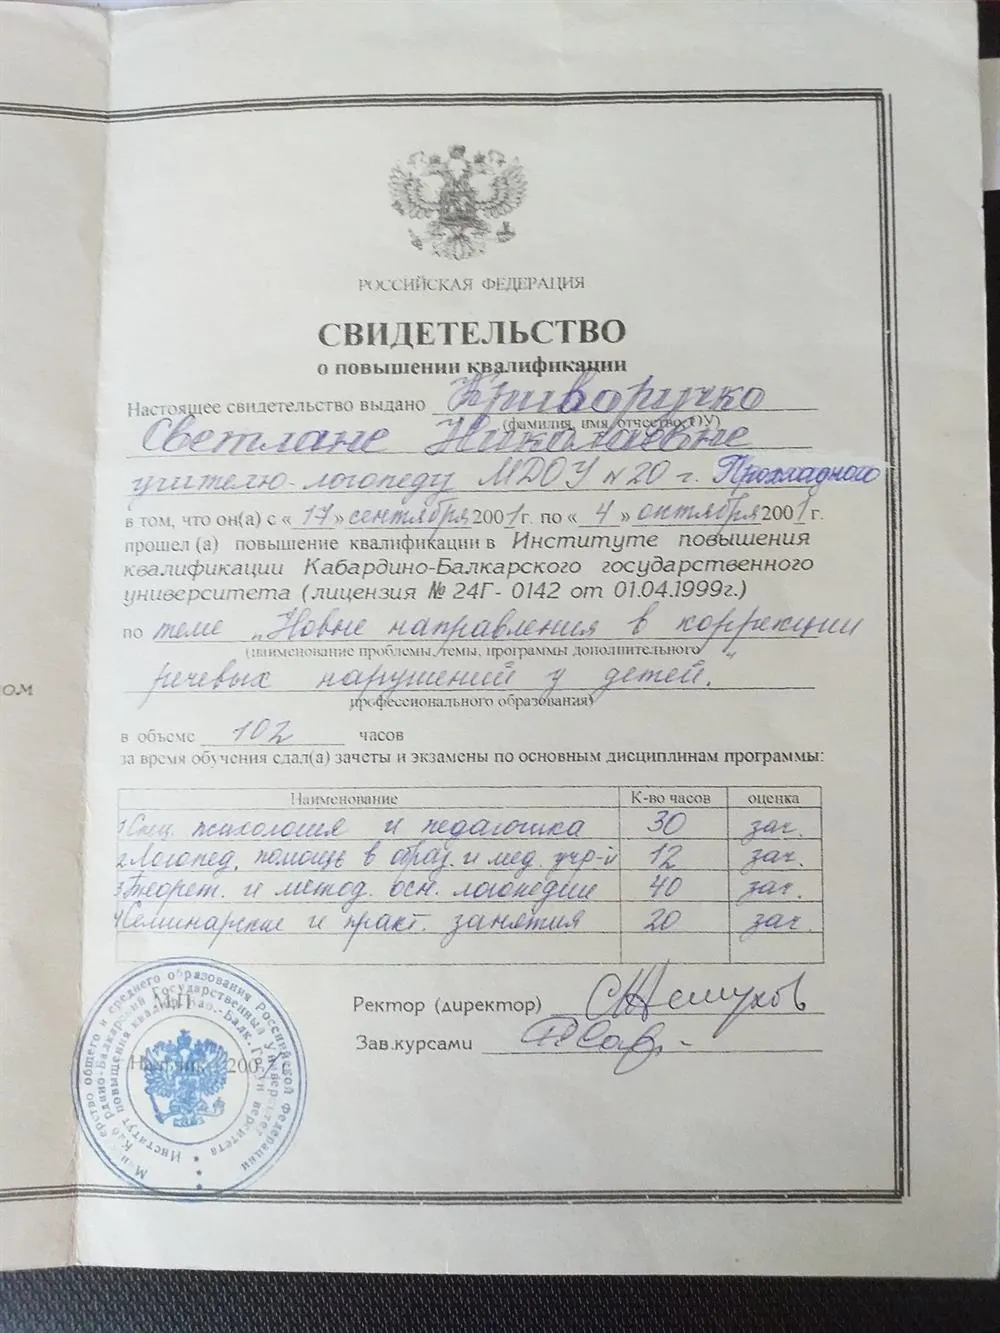 РОССИЙСКАЯ ФЕДЕРАЦИЯ
СВИДЕТЕЛЬСТВО
о повышении квалификации
Настоящее свидетельство выдано Криворучко
(фамилия, имя, отчество, ОУ)
Светлане Николаевне
учителю-логопеду МДОУ №20 г. Прохладного
в том, что он(а) с « 17 » сентября 2001 г. по « 4 » октября 2001 г.
прошел (а) повышение квалификации в Институте повышения
квалификации Кабардино-Балкарского государственного
университета (лицензия № 24Г- 0142 от 01.04.1999г.)
по теме „Новые направления в коррекции
(наименование проблемы, темы, программы дополнительного
речевых нарушений у детей."
профессионального образования)
в объеме 102 часов
за время обучения сдал(а) зачеты и экзамены по основным дисциплинам программы:
Наименование К-во часов оценка
1 Спец. психология и педагогика 30 зач.
2 Логопед. помощь в образ. и мед. учр-й 12 зач.
3 Теорет. и метод. осн. логопедии 40 зач.
4 Семинарские и практ. занятия 20 зач.
М.П.
Ректор (директор)
Зав.курсами
Нальчик 200
Министерство общего и среднего образования Российской Федерации
Кабардино-Балкарский Государственный Университет
Институт повышения квалификации Каб.-Балк. Госуниверситета
ом